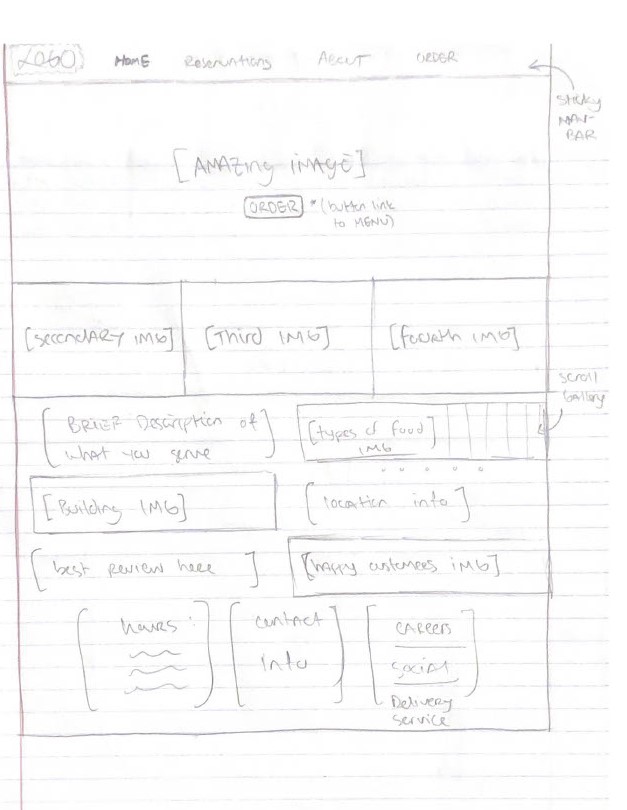 LOGO HOME Reservations ABOUT ORDER
Sticky
NAV-
BAR
[AMAZING IMAGE]
ORDER *(button link
to MENU)
[SECONDARY IMG] [Third IMG] [fourth IMG]
Scroll
Gallery
[BRIEF Description of
what you serve]
[types of food]
IMG
[Building IMG] [location info]
[best review here] [happy customers IMG]
hours:
contact
info
CAREERS
SOCIAL
Delivery
Service